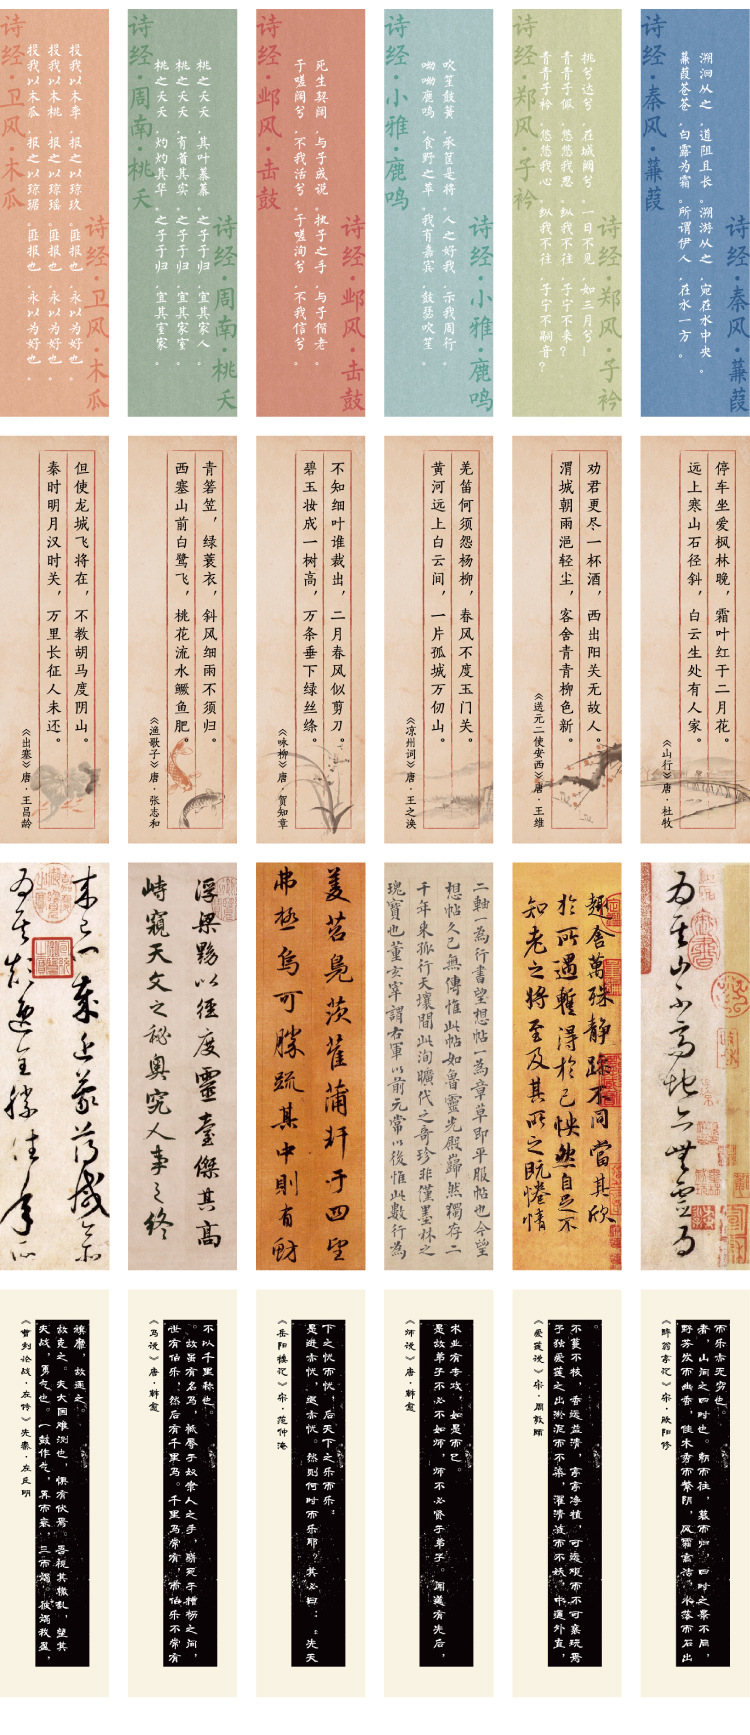 诗经·卫风·木瓜
投我以木瓜，报之以琼琚。匪报也，永以为好也。
投我以木桃，报之以琼瑶。匪报也，永以为好也。
投我以木李，报之以琼玖。匪报也，永以为好也。
诗经·卫风·木瓜
诗经·周南·桃夭
桃之夭夭，灼灼其华。之子于归，宜其室家。
桃之夭夭，有蕡其实。之子于归，宜其家室。
桃之夭夭，其叶蓁蓁。之子于归，宜其家人。
诗经·周南·桃夭
诗经·邶风·击鼓
于嗟阔兮，不我活兮。于嗟洵兮，不我信兮。
死生契阔，与子成说。执子之手，与子偕老。
诗经·邶风·击鼓
诗经·小雅·鹿鸣
呦呦鹿鸣，食野之苹。我有嘉宾，鼓瑟吹笙。
吹笙鼓簧，承筐是将。人之好我，示我周行。
诗经·小雅·鹿鸣
诗经·郑风·子衿
青青子衿，悠悠我心。纵我不往，子宁不嗣音？
青青子佩，悠悠我思。纵我不往，子宁不来？
挑兮达兮，在城阙兮。一日不见，如三月兮！
诗经·郑风·子衿
诗经·秦风·蒹葭
蒹葭苍苍，白露为霜。所谓伊人，在水一方。
溯洄从之，道阻且长。溯游从之，宛在水中央。
诗经·秦风·蒹葭
《出塞》唐·王昌龄
秦时明月汉时关，万里长征人未还。
但使龙城飞将在，不教胡马度阴山。
《渔歌子》唐·张志和
西塞山前白鹭飞，桃花流水鳜鱼肥。
青箬笠，绿蓑衣，斜风细雨不须归。
《咏柳》唐·贺知章
碧玉妆成一树高，万条垂下绿丝绦。
不知细叶谁裁出，二月春风似剪刀。
《凉州词》唐·王之涣
黄河远上白云间，一片孤城万仞山。
羌笛何须怨杨柳，春风不度玉门关。
《送元二使安西》唐·王维
渭城朝雨浥轻尘，客舍青青柳色新。
劝君更尽一杯酒，西出阳关无故人。
《山行》唐·杜牧
远上寒山石径斜，白云生处有人家。
停车坐爱枫林晚，霜叶红于二月花。
浮梁黝以徑度靈臺傑其高
峙窺天文之秘奧究人事之終
菱苕鳧茨萑蒲軒于四望
弗極烏可勝疏其中則有魴
二軸一為行書望想帖一為章草即平服帖也今望
想帖久已無傳惟此帖如魯靈光殿巋然獨存二
千年來孤行天壤間此洵曠代之奇珍非僅墨林之
瑰寶也董玄宰謂右軍以前元常以後惟此數行為
趣舍萬殊静躁不同當其欣
於所遇蹔得於己怏然自足不
知老之將至及其所之既惓情
《曹刿论战·左传》先秦·左丘明
夫战，勇气也。一鼓作气，再而衰，三而竭。彼竭我盈，
故克之。夫大国难测也，惧有伏焉。吾视其辙乱，望其
旗靡，故逐之。
《马说》唐·韩愈
世有伯乐，然后有千里马。千里马常有，而伯乐不常有
。故虽有名马，祗辱于奴隶人之手，骈死于槽枥之间，
不以千里称也。
《岳阳楼记》宋·范仲淹
是进亦忧，退亦忧。然则何时而乐耶？其必曰：“先天
下之忧而忧，后天下之乐而乐”
《师说》唐·韩愈
是故弟子不必不如师，师不必贤于弟子。闻道有先后，
术业有专攻，如是而已。
《爱莲说》宋·周敦颐
予独爱莲之出淤泥而不染，濯清涟而不妖，中通外直，
不蔓不枝，香远益清，亭亭净植，可远观而不可亵玩焉
。
《醉翁亭记》宋·欧阳修
野芳发而幽香，佳木秀而繁阴，风霜高洁，水落而石出
者，山间之四时也。朝而往，暮而归，四时之景不同，
而乐亦无穷也。